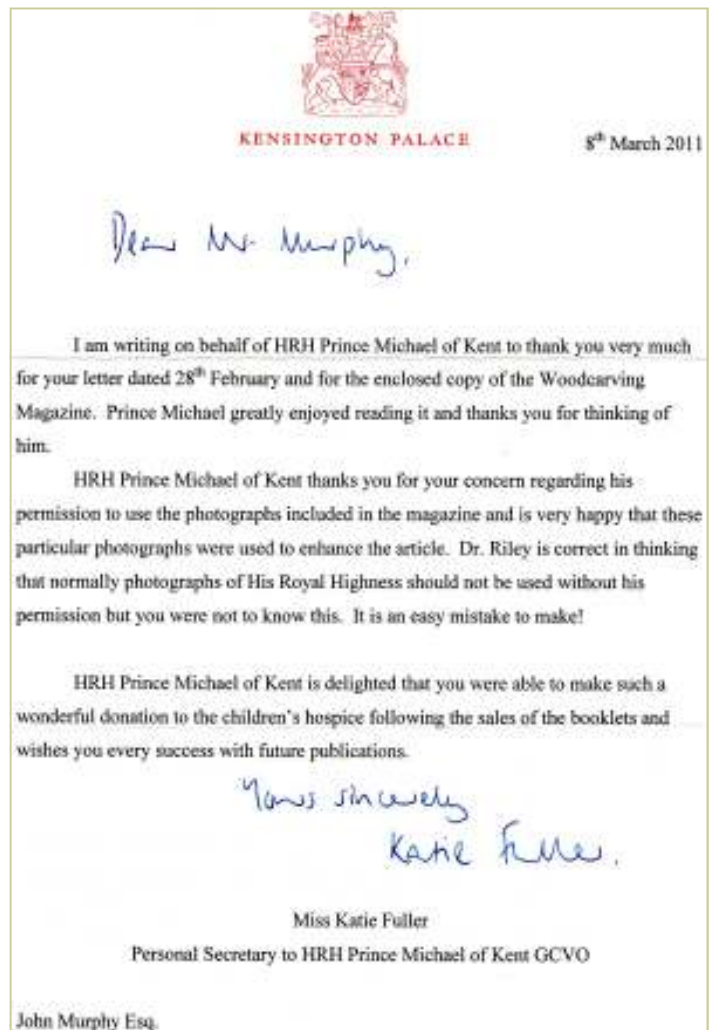 KENSINGTON PALACE
8th March 2011
Dear Mr Murphy,
I am writing on behalf of HRH Prince Michael of Kent to thank you very much
for your letter dated 28th February and for the enclosed copy of the Woodcarving
Magazine. Prince Michael greatly enjoyed reading it and thanks you for thinking of
him.
HRH Prince Michael of Kent thanks you for your concern regarding his
permission to use the photographs included in the magazine and is very happy that these
particular photographs were used to enhance the article. Dr. Riley is correct in thinking
that normally photographs of His Royal Highness should not be used without his
permission but you were not to know this. It is an easy mistake to make!
HRH Prince Michael of Kent is delighted that you were able to make such a
wonderful donation to the children's hospice following the sales of the booklets and
wishes you every success with future publications.
Yours sincerely
Katie Fuller.
Miss Katie Fuller
Personal Secretary to HRH Prince Michael of Kent GCVO
John Murphy Esq.